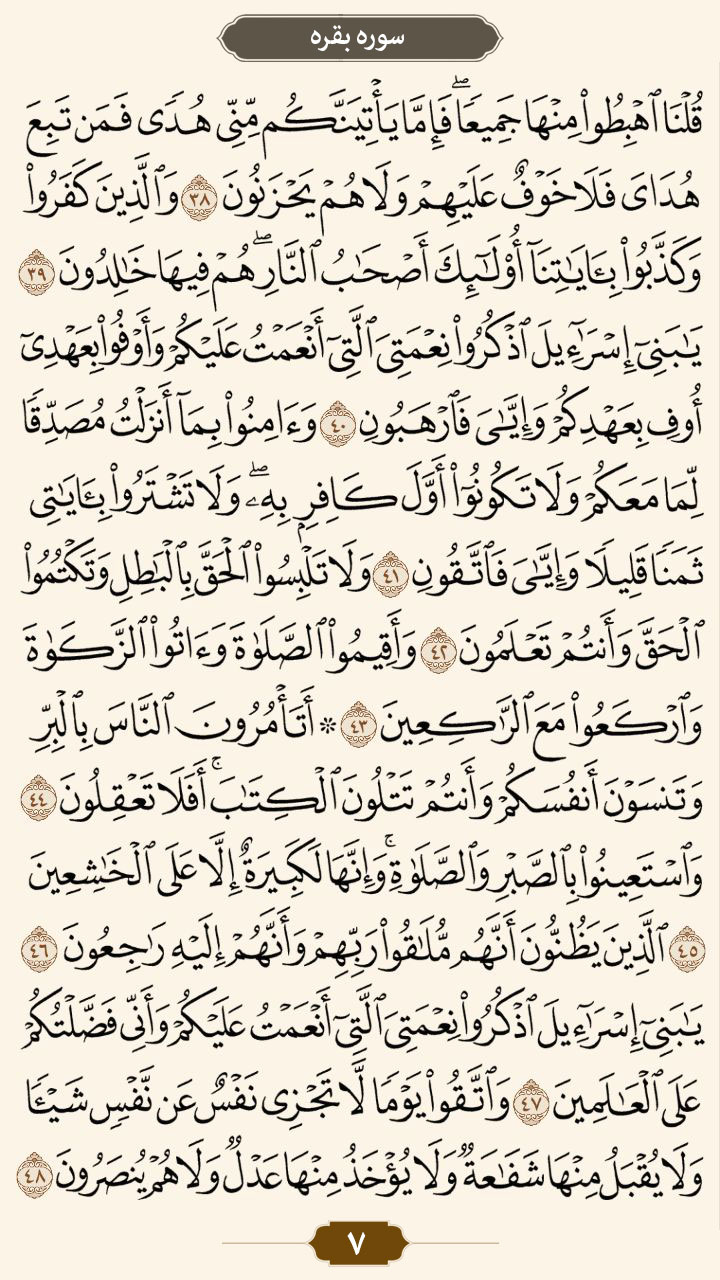 سوره بقره
قُلۡنَا ٱهۡبِطُواْ مِنۡهَا جَمِيعٗاۖ فَإِمَّا يَأۡتِيَنَّكُم مِّنِّي هُدٗى فَمَن تَبِعَ
هُدَايَ فَلَا خَوۡفٌ عَلَيۡهِمۡ وَلَا هُمۡ يَحۡزَنُونَ ٣٨ وَٱلَّذِينَ كَفَرُواْ
وَكَذَّبُواْ بِـَٔايَٰتِنَآ أُوْلَٰٓئِكَ أَصۡحَٰبُ ٱلنَّارِۖ هُمۡ فِيهَا خَٰلِدُونَ ٣٩
يَٰبَنِيٓ إِسۡرَٰٓءِيلَ ٱذۡكُرُواْ نِعۡمَتِيَ ٱلَّتِيٓ أَنۡعَمۡتُ عَلَيۡكُمۡ وَأَوۡفُواْ بِعَهۡدِيٓ
أُوفِ بِعَهۡدِكُمۡ وَإِيَّٰيَ فَٱرۡهَبُونِ ٤٠ وَءَامِنُواْ بِمَآ أَنزَلۡتُ مُصَدِّقٗا
لِّمَا مَعَكُمۡ وَلَا تَكُونُوٓاْ أَوَّلَ كَافِرِۭ بِهِۦۖ وَلَا تَشۡتَرُواْ بِـَٔايَٰتِي
ثَمَنٗا قَلِيلٗا وَإِيَّٰيَ فَٱتَّقُونِ ٤١ وَلَا تَلۡبِسُواْ ٱلۡحَقَّ بِٱلۡبَٰطِلِ وَتَكۡتُمُواْ
ٱلۡحَقَّ وَأَنتُمۡ تَعۡلَمُونَ ٤٢ وَأَقِيمُواْ ٱلصَّلَوٰةَ وَءَاتُواْ ٱلزَّكَوٰةَ
وَٱرۡكَعُواْ مَعَ ٱلرَّٰكِعِينَ ٤٣ ۞ أَتَأۡمُرُونَ ٱلنَّاسَ بِٱلۡبِرِّ
وَتَنسَوۡنَ أَنفُسَكُمۡ وَأَنتُمۡ تَتۡلُونَ ٱلۡكِتَٰبَۚ أَفَلَا تَعۡقِلُونَ ٤٤
وَٱسۡتَعِينُواْ بِٱلصَّبۡرِ وَٱلصَّلَوٰةِۚ وَإِنَّهَا لَكَبِيرَةٌ إِلَّا عَلَى ٱلۡخَٰشِعِينَ
٤٥ ٱلَّذِينَ يَظُنُّونَ أَنَّهُم مُّلَٰقُواْ رَبِّهِمۡ وَأَنَّهُمۡ إِلَيۡهِ رَٰجِعُونَ ٤٦
يَٰبَنِيٓ إِسۡرَٰٓءِيلَ ٱذۡكُرُواْ نِعۡمَتِيَ ٱلَّتِيٓ أَنۡعَمۡتُ عَلَيۡكُمۡ وَأَنِّي فَضَّلۡتُكُمۡ
عَلَى ٱلۡعَٰلَمِينَ ٤٧ وَٱتَّقُواْ يَوۡمٗا لَّا تَجۡزِي نَفۡسٌ عَن نَّفۡسٖ شَيۡـٔٗا
وَلَا يُقۡبَلُ مِنۡهَا شَفَٰعَةٞ وَلَا يُؤۡخَذُ مِنۡهَا عَدۡلٞ وَلَا هُمۡ يُنصَرُونَ ٤٨
٧